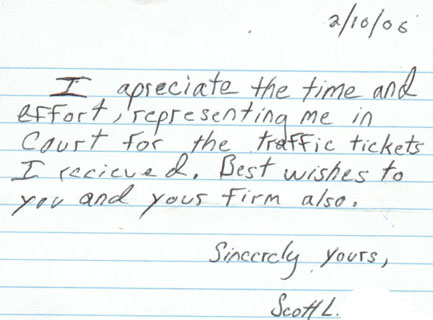 2/10/06
I apreciate the time and
effort, representing me in
Court for the traffic tickets
I recieved. Best wishes to
you and your firm also.
Sincerely yours,
Scott L.